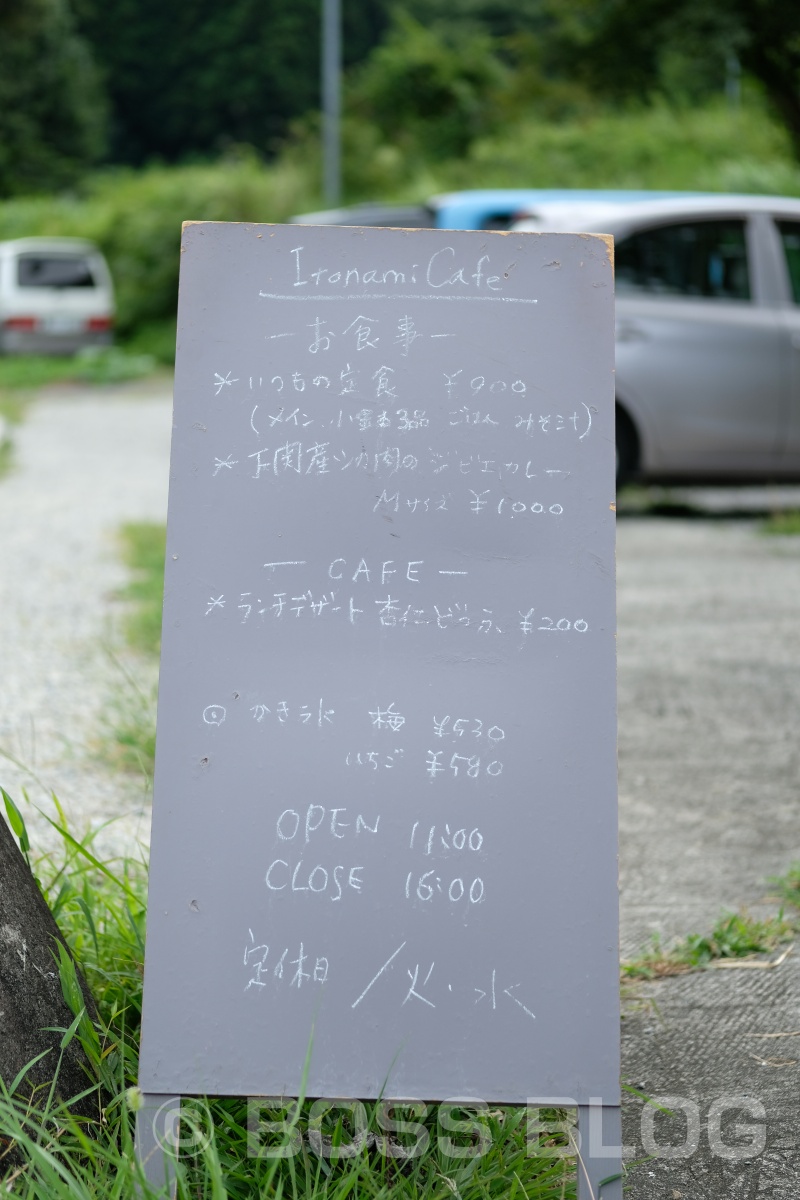 Itonami Cafe
ーお食事ー
＊いつもの定食 ¥900
(メイン、小鉢3品 ごはん みそ汁)
＊下関産シカ肉のジビエカレー
Mサイズ ¥1,000
ー CAFE ー
＊ランチデザート 杏仁どうふ ¥200
◎ かき氷 梅 ¥530
いちご ¥580
OPEN 11:00
CLOSE 16:00
定休日／火・水
© BOSS BLOG